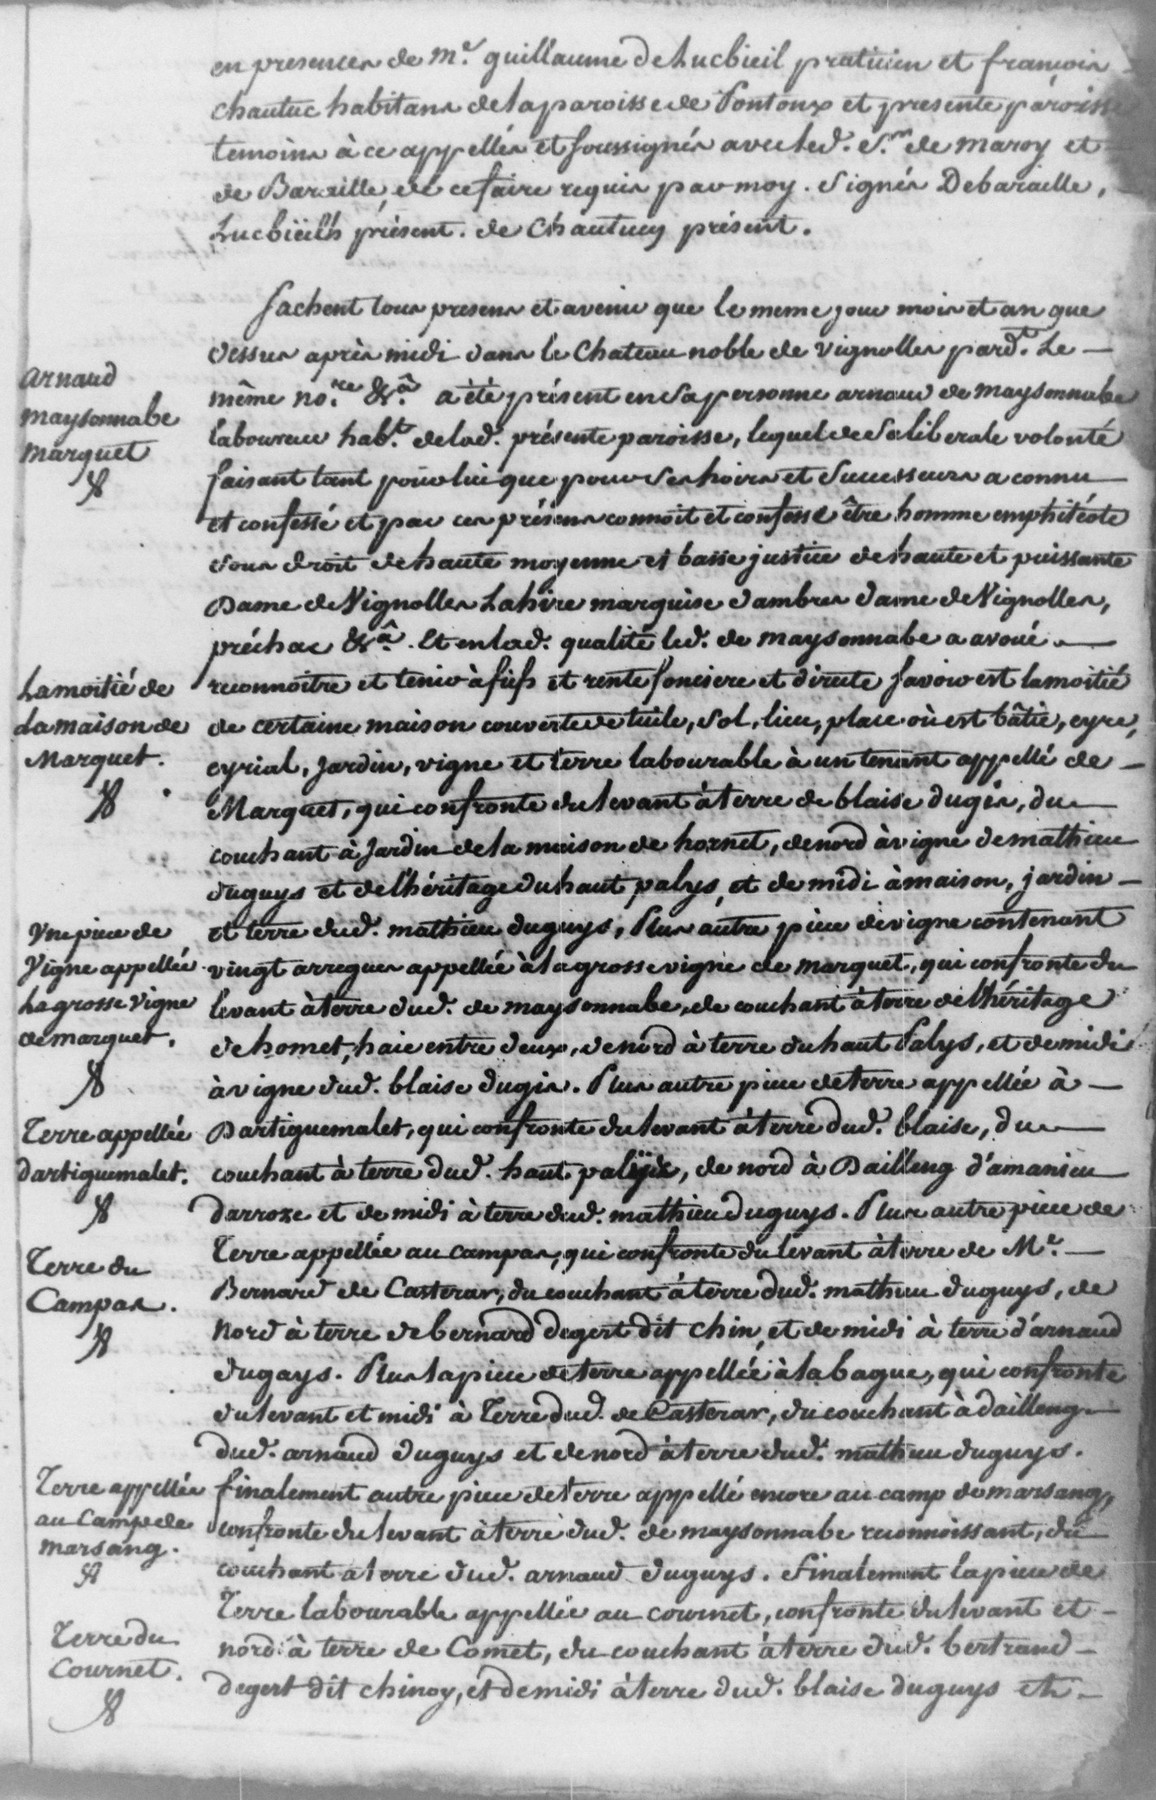 en presences de Mᵉ. guillaume de Lucbieil praticien et françois
chautuc habitans de la paroisse de Pontonx et presente paroisse
temoins à ce appellés et soussignés avec led. Sʳ. de maroy et
de Baraille, de ce faire requis par moy. Signés Debaraille,
Lucbieilh présent. de Chautucq présent.
Sachent tous presens et avenir que le meme jour mois et an que
dessus après midi dans le Chateau noble de vignolles pard.ᵗ Le
Arnaud
Maysonnabe
Marquet
même no.ʳᵉ &ᵃ. a été présent en sa personne arnaud de maysonnabe
laboureur hab.ᵗ de lad. présente paroisse, lequel de sa liberale volonté
faisant tant pour lui que pour ses hoirs et successeurs a connu
et confessé et par ces présens connoit et confesse être homme emphitéote
sous droit de haute moyenne et basse justice de haute et puissante
Dame de Vignolles Lahire marquise d'ambres dame de Vignolles,
préchac &ᵃ. Et en lad. qualité led. de maysonnabe a avoué
La moitié de
La maison de
Marquet.
reconnoitre et tenir à fiefs et rente fonciere et directe savoir est la moitié
de certaine maison couverte de tuile, sol, lieu, place où est bâtie, eyre,
eyrial, Jardin, vigne et terre labourable à un tenant appellé de
Marquet, qui confronte du levant à terre de blaise dugin, du
couchant à Jardin de la maison de hornet, de nord à vigne de mathieu
duguys et de l'héritage du haut palys, et de midi à maison, jardin
Une piece de
Vigne appellée
La grosse Vigne
de marquet.
et terre dud. mathieu duguys, Plus autre piece de vigne contenant
vingt arregues appellée à la grosse vigne de marquet, qui confronte du
levant à terre dud. de maysonnabe, de couchant à terre de l'héritage
de homet, haie entre deux, de nord à terre du haut Palys, et de midi
à vigne dud. blaise dugin. Plus autre piece de terre appellée à
Terre appellée
dartiguemalet.
Dartiguemalet, qui confronte du levant à terre dud. blaise, du
couchant à terre dud. haut palys, de nord à Dailleng d'amanieu
darroze et de midi à terre dud. mathieu duguys. Plus autre piece de
Terre du
Campas.
Terre appellée au campas, qui confronte du levant à terre de Mᵉ.
Bernard de Casteras, du couchant à terre dud. mathieu duguys, de
Nord à terre de bernard degert dit chin, et de midi à terre d'arnaud
dugays. Plus la piece de terre appellée à la bague, qui confronte
du levant et midi à Terre dud. de Casteras, du couchant à dailleng
dud. arnaud duguys et de nord à terre dud. mathieu duguys.
Terre appellée
au Camp de
marsang.
finalement autre piece de terre appellé encore au camp de marsang,
confronte du levant à terre dud. de maysonnabe reconnoissant, du
couchant a terre dud. arnaud duguys. finalement la piece de
Terre du
Cournet.
Terre labourable appellée au cournet, confronte du levant et
nord à terre de Comet, du couchant à terre dud. bertrand
degert dit chinoy, et de midi à terre dud. blaise duguys et